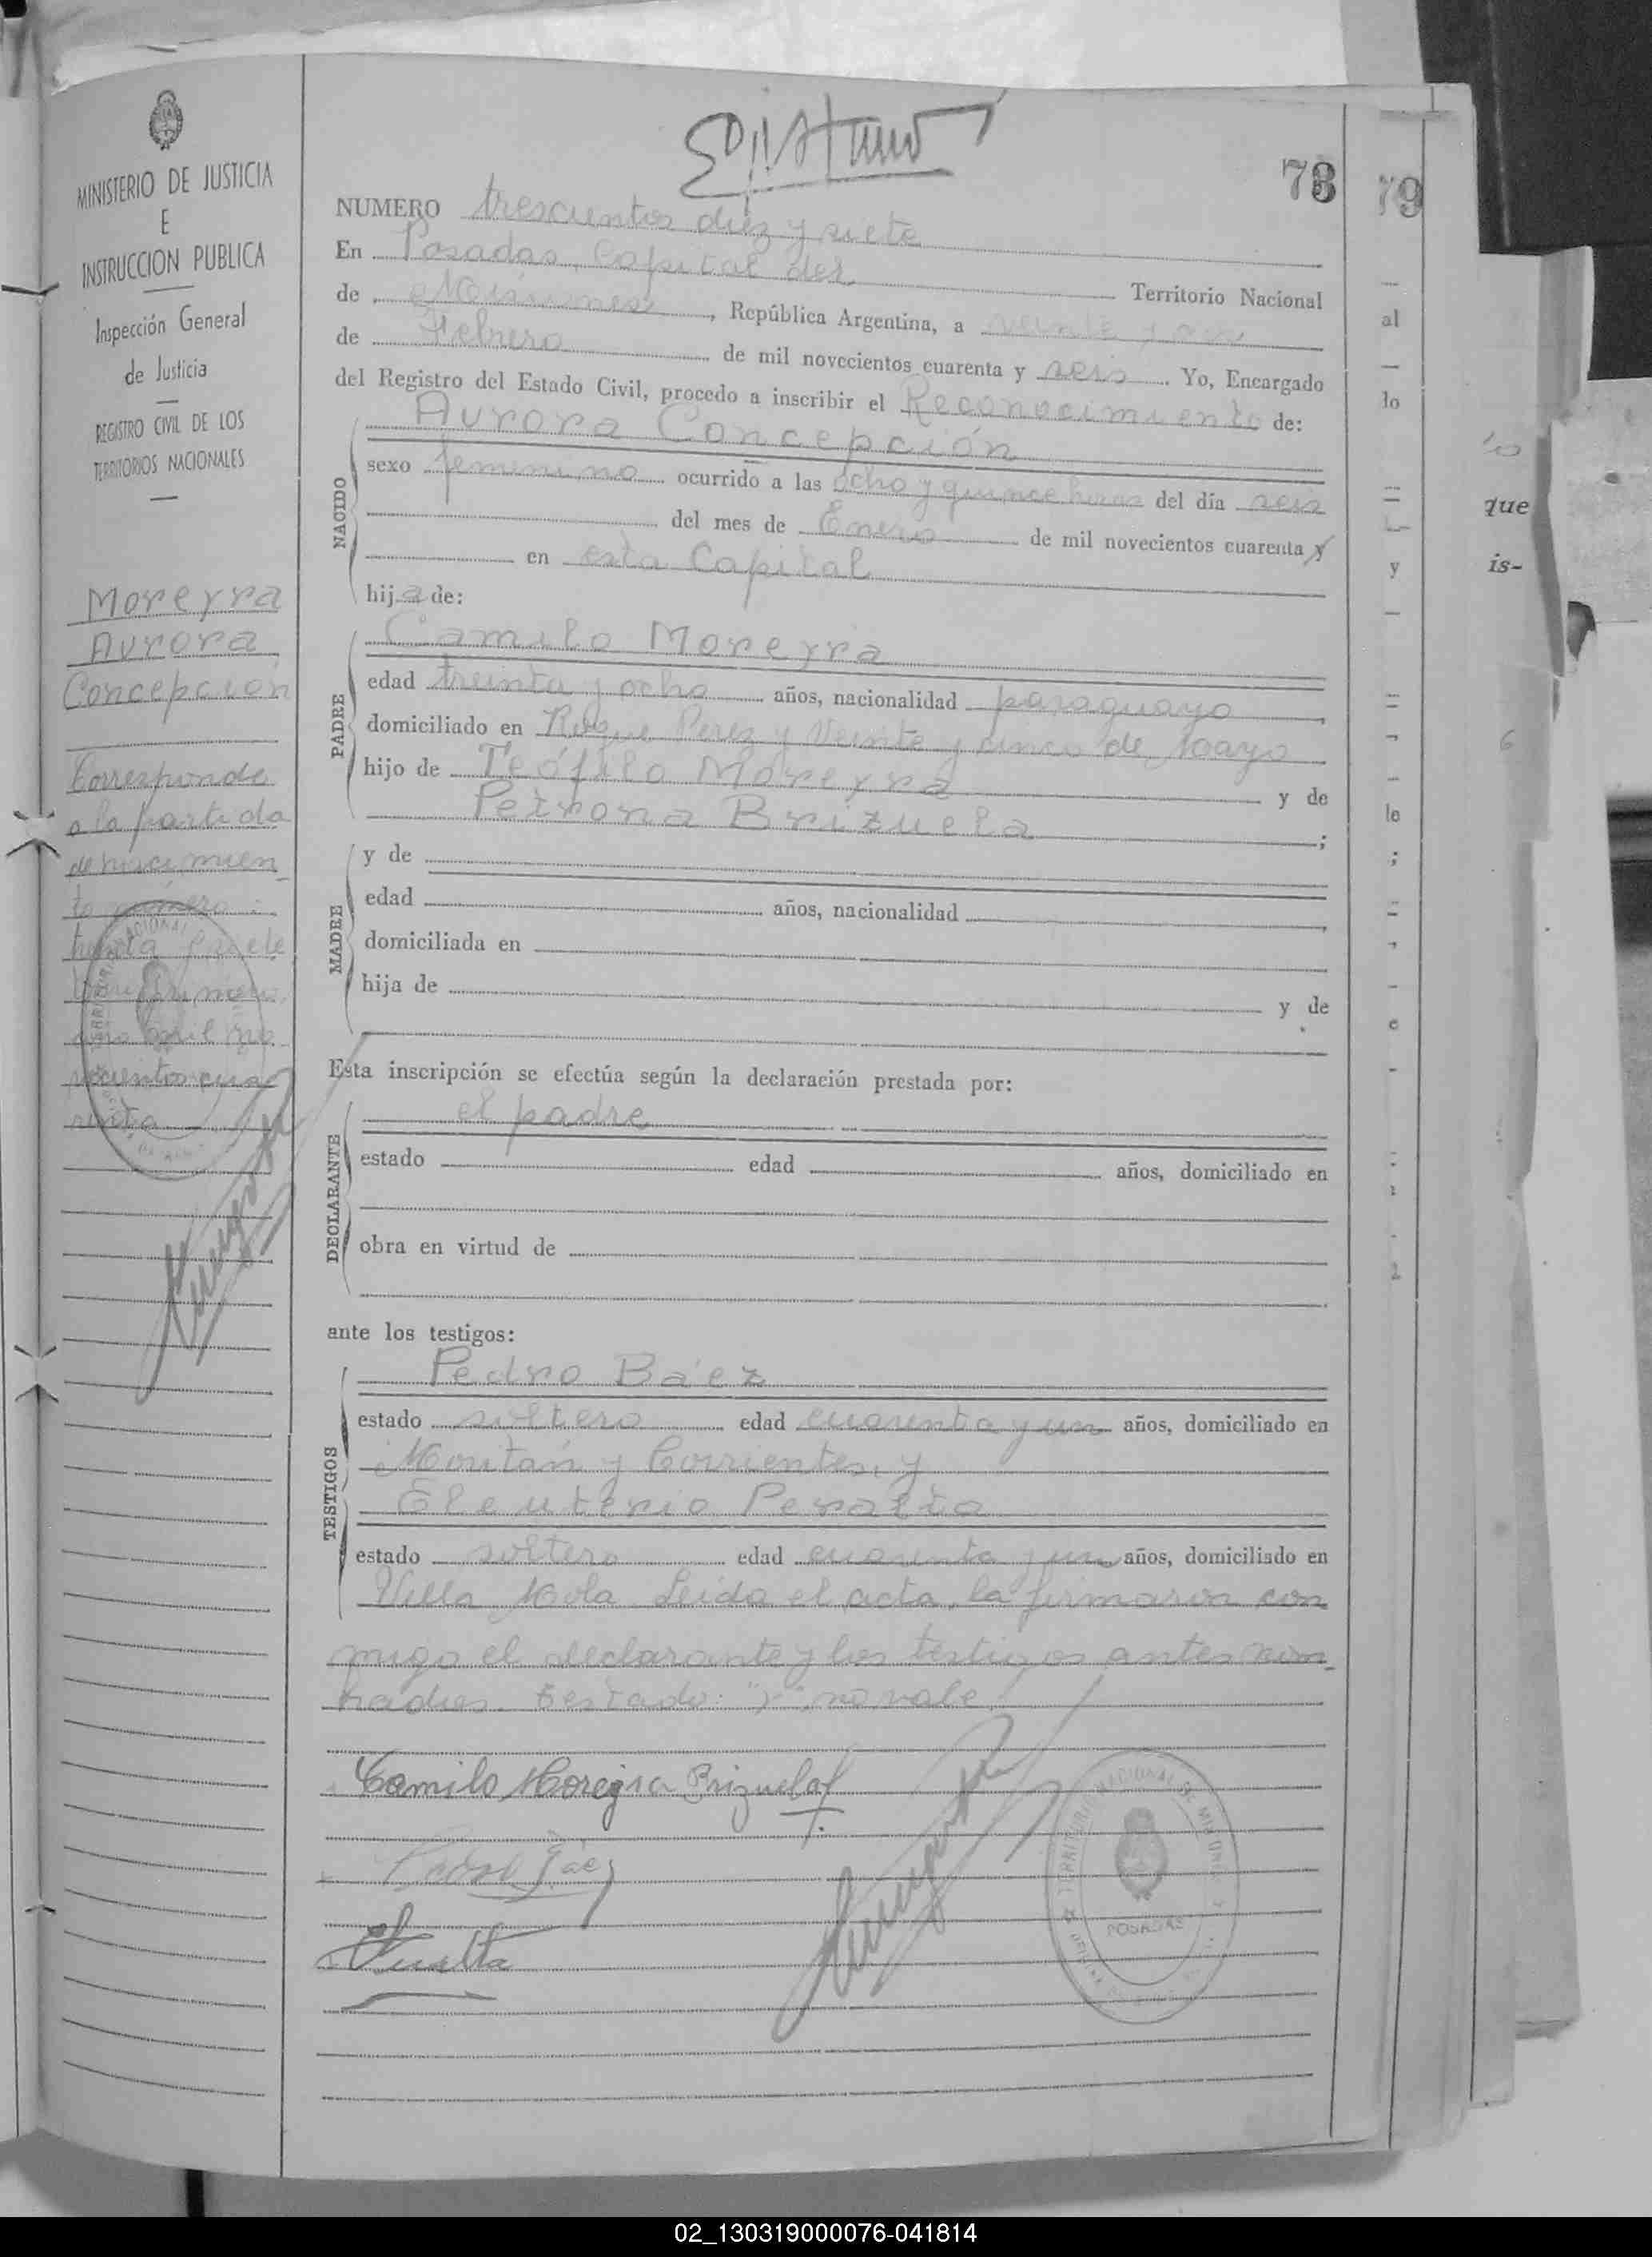 MINISTERIO DE JUSTICIA
E
INSTRUCCION PUBLICA
Inspección General
de Justicia
REGISTRO CIVIL DE LOS
TERRITORIOS NACIONALES
Moreyra
Aurora
Concepción
Corresponde
a la partida
de nacimien-
to número:
treinta y siete
año mil no-
vecientos cua-
renta
78
79
NUMERO trescientos diez y siete
En Posadas, Capital del Territorio Nacional
de Misiones, República Argentina, a veinte y
de Febrero de mil novecientos cuarenta y seis. Yo, Encargado
del Registro del Estado Civil, procedo a inscribir el Reconocimiento de:
NACIDO
Aurora Concepción
sexo femenino ocurrido a las ocho y quince horas del día seis
del mes de Enero de mil novecientos cuarenta y
en esta Capital
hija de:
PADRE
Camilo Moreyra
edad treinta y ocho años, nacionalidad paraguayo,
domiciliado en Roque Perez y Veinte y cinco de Mayo
hijo de Teófilo Moreyra y de
Petrona Brizuela;
MADRE
y de
edad años, nacionalidad,
domiciliada en
hija de y de
Esta inscripción se efectúa según la declaración prestada por:
DECLARANTE
el padre
estado edad años, domiciliado en
obra en virtud de
ante los testigos:
TESTIGOS
Pedro Báez
estado soltero edad cuarenta y un años, domiciliado en
y Corrientes, y
Eleuterio Peralta
estado soltero edad cuarenta y un años, domiciliado en
Villa Mola. Leída el acta, la firmaron con-
migo el declarante y los testigos antes nom-
brados. Testado: "y", no vale
Camilo Moreyra Brizuela
Pedro Báez
EPeralta
TERRITORIO NACIONAL DE MISIONES
POSADAS
al
lo
y
le
;
que
is-
6
02_130319000076-041814